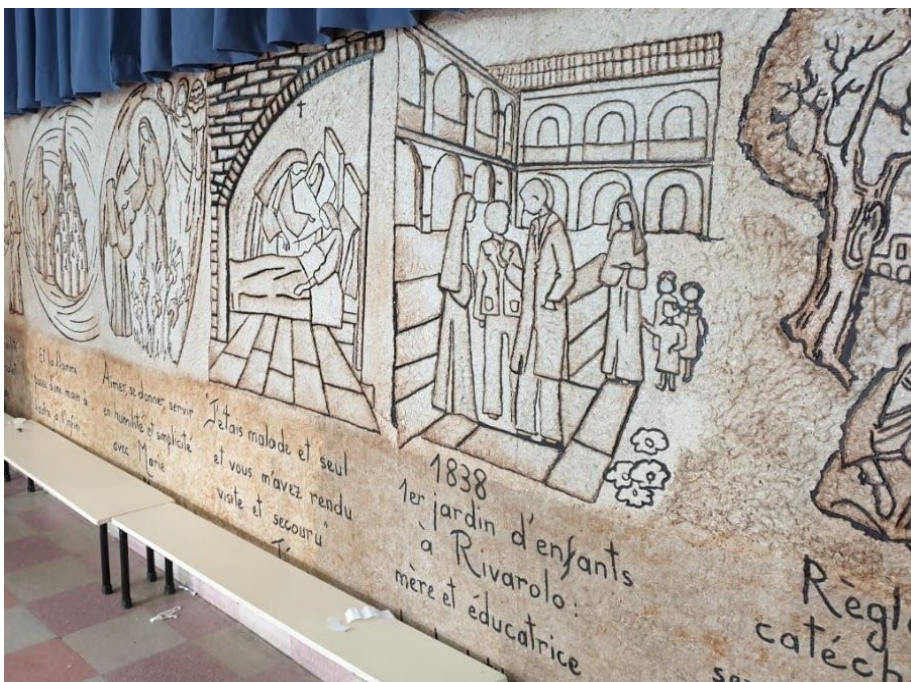 Et la flamme
d'une main à
Aimer, se donner, servir
en humilité et simplicité
avec Marie
"J'étais malade et seul
et vous m'avez rendu
visite et secouru"
1838
1er jardin d'enfants
à Rivarolo:
mère et éducatrice
Règl
catéch